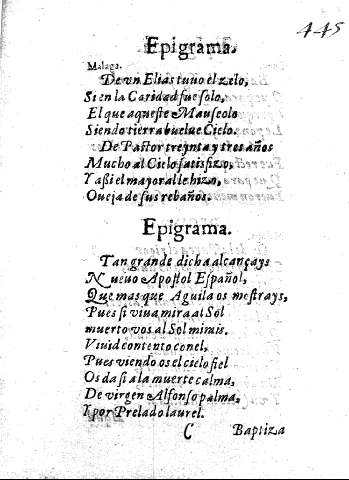 445
Epigrama.
Malaga.
De vn Elias tuuo el zelo,
Si en la Caridad fue solo,
El que aqueste Mauseolo
Siendo tierra buelue Cielo.
De Pastor treynta y tres años
Mucho al Cielo satisfizo,
Y assi el mayor alle hizo,
Oueja de sus rebaños.
Epigrama.
Tan grande dicha alcançays
Nueuo Apostol Español,
Que mas que Aguila os mostrays,
Pues si viua mira al Sol
muerto vos al Sol mirais.
Viuid contento con el,
Pues viendo os el cielo fiel
Os da si a la muerte calma,
De virgen Alfonso palma,
Y por Prelado laurel.
C Baptiza